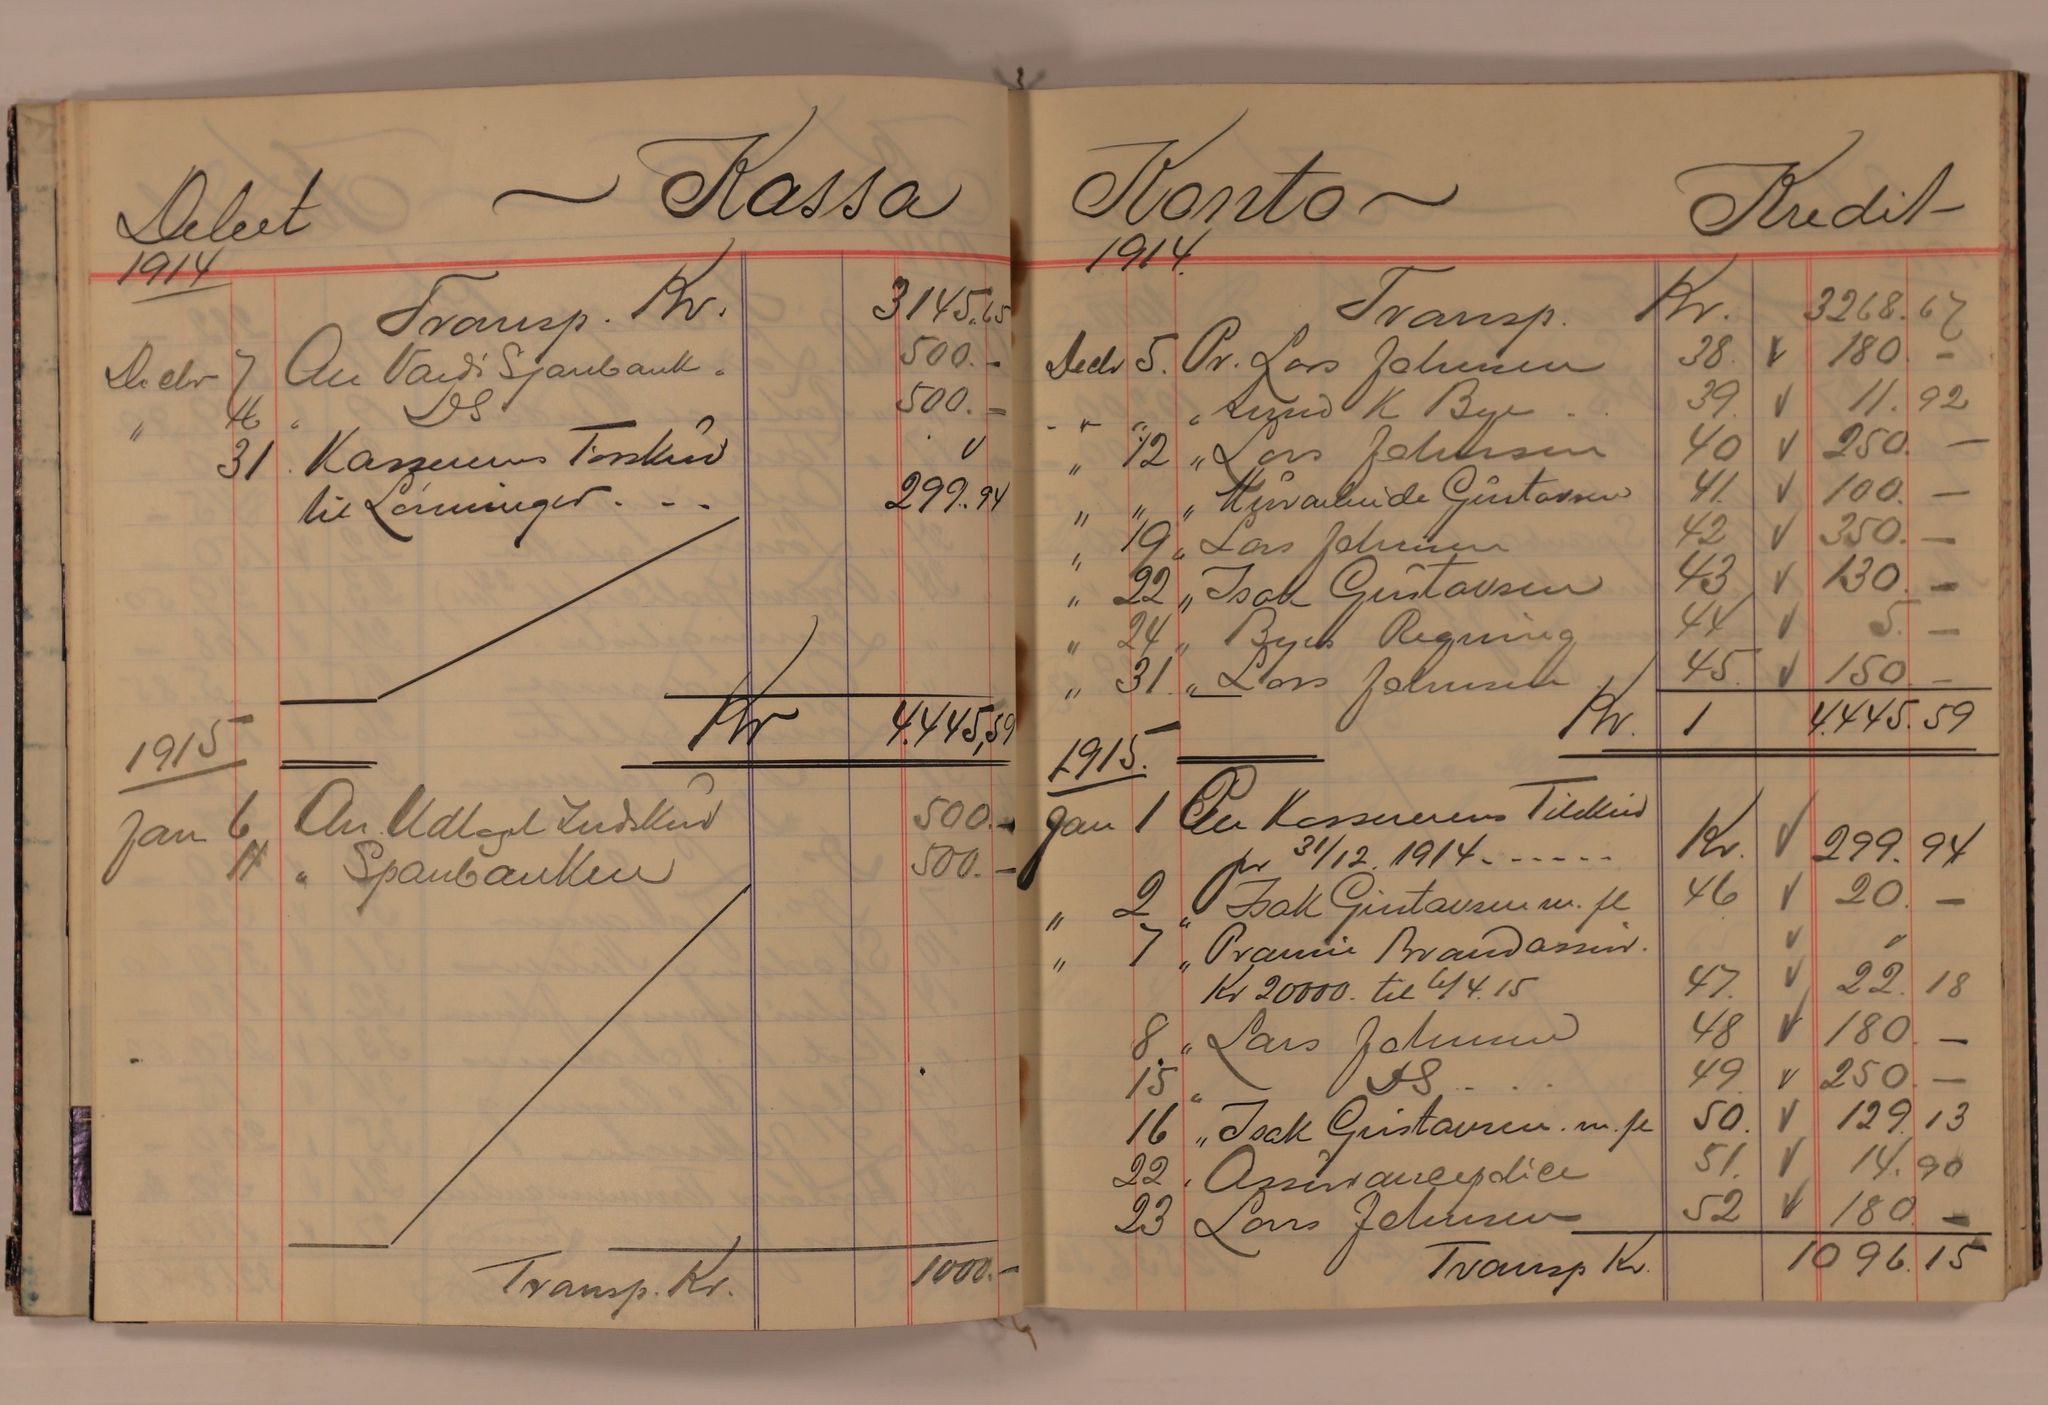 Debet ~ Kassa
1914
Transp. Kr. 3145.65
Decbr 7 An Sparebank. 500.-
" " DS 500.-
31. Kasserens Forskud
til Lønninger. - - 299.94
Kr 4.445,59
1915
Jan 6 An Udlagt Indskud 500.-
" Sparebanken 500.-
Transp. Kr. 1000.-
Konto ~ Kredit
1914.
Transp. Kr. 3268.67
Decbr 5. Pr. Lars Johnsen 38. v 180.-
" " " K Bye . . 39. v 11.92
" 12 " Lars Johnsen 40 v 250.-
" " " Murarbeide Gustavsen 41. v 100.-
" 19 " Lars Johnsen 42 v 350.-
" 22 " Isak Gustavsen 43 v 130.-
" 24 " Byes Regning 44 v 5.-
" 31. " Lars Johnsen 45. v 150.-
Kr. 1 4.445.59
1915.
Jan 1 Kassererens Tilskud
pr 31/12. 1914 - - - - - - Kr. v 299.94
" 2 " Isak Gustavsen m. fl 46 v 20.-
" 7 " Præmie Brandassur.
Kr 20000. til 6/4.15 47. v 22.18
8. " Lars Johnsen 48 v 180.-
15. " DS . . . 49. v 250.-
16 " Isak Gustavsen. m. fl 50. v 129.13
22. " Assurancepolice 51. v 14.90
23 Lars Johnsen 52 v 180.-
Transp Kr. 1096.15